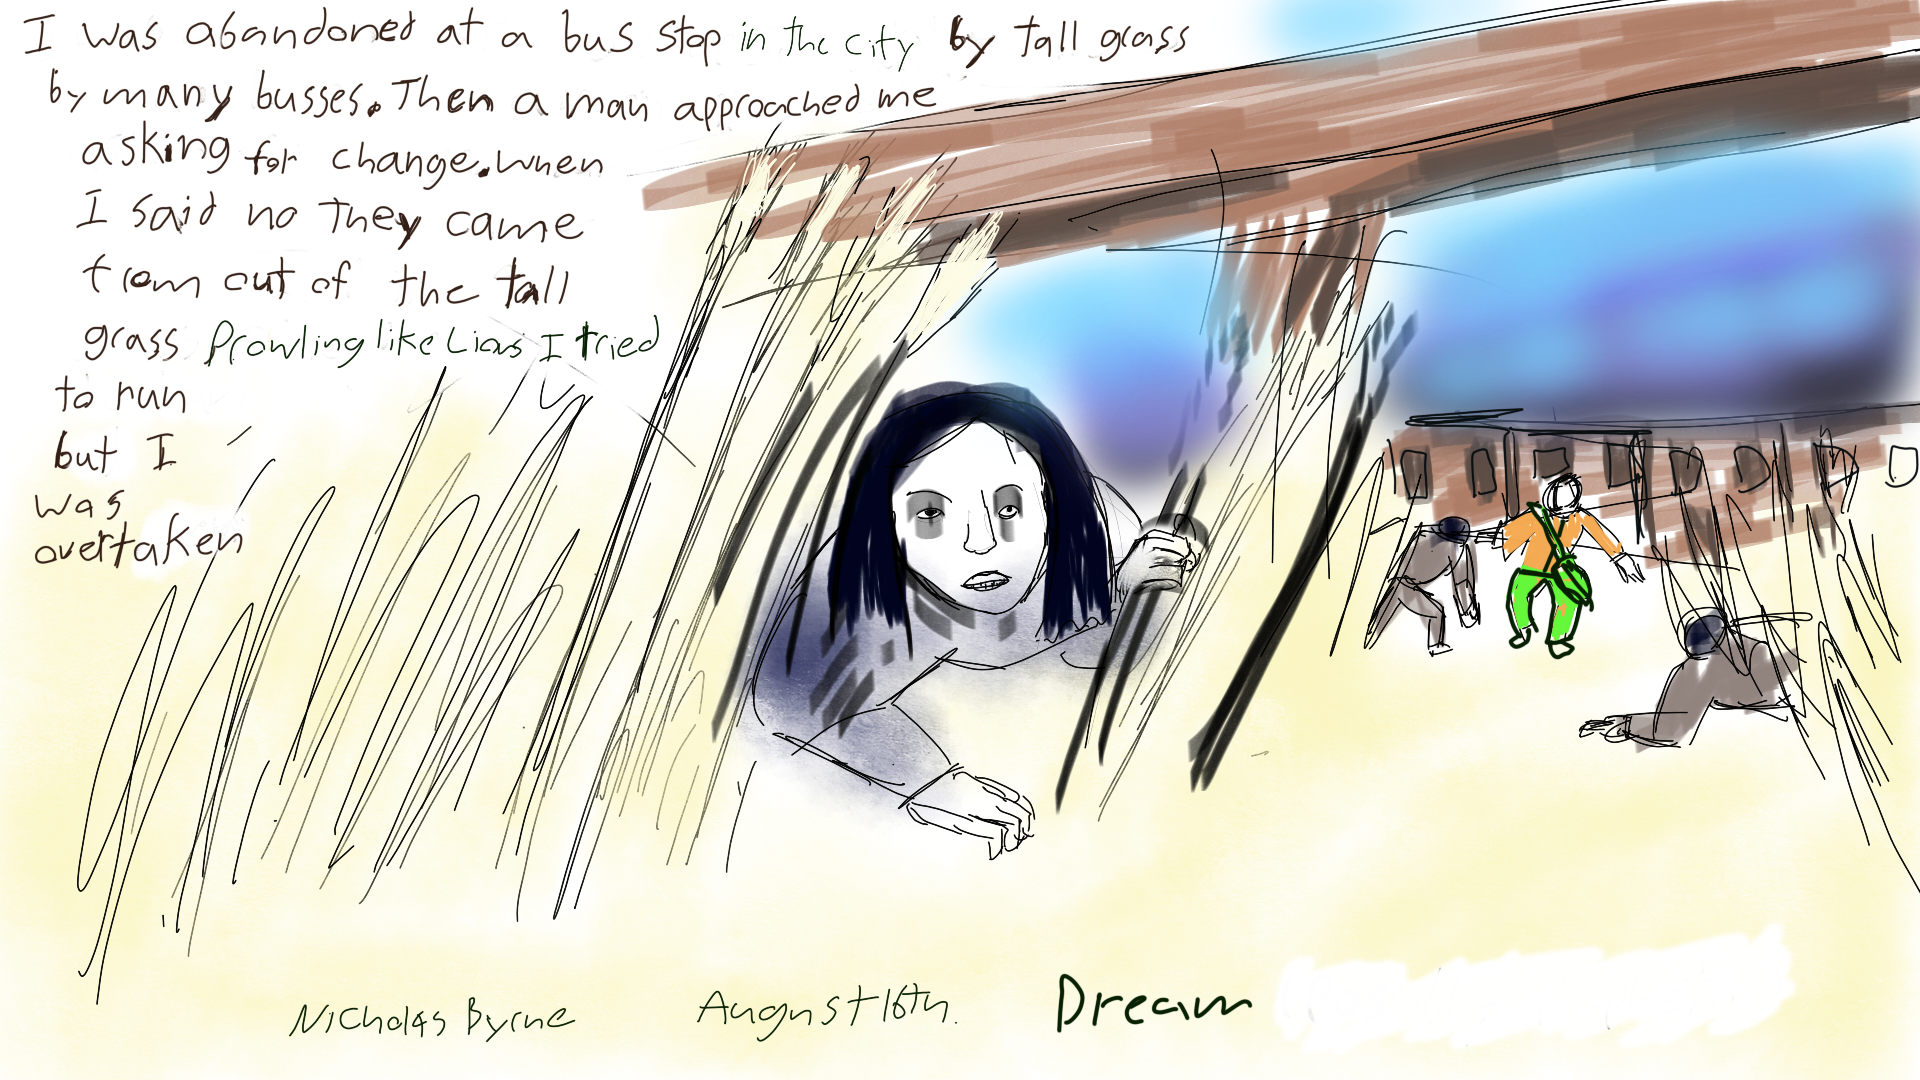 I was abandoned at a bus stop in the city by tall grass
by many busses. Then a man approached me
asking for change. when
I said no They came
from out of the tall
grass Prowling like Lions I tried
to run
but I
was
overtaken
Nicholas Byrne August 16th. Dream